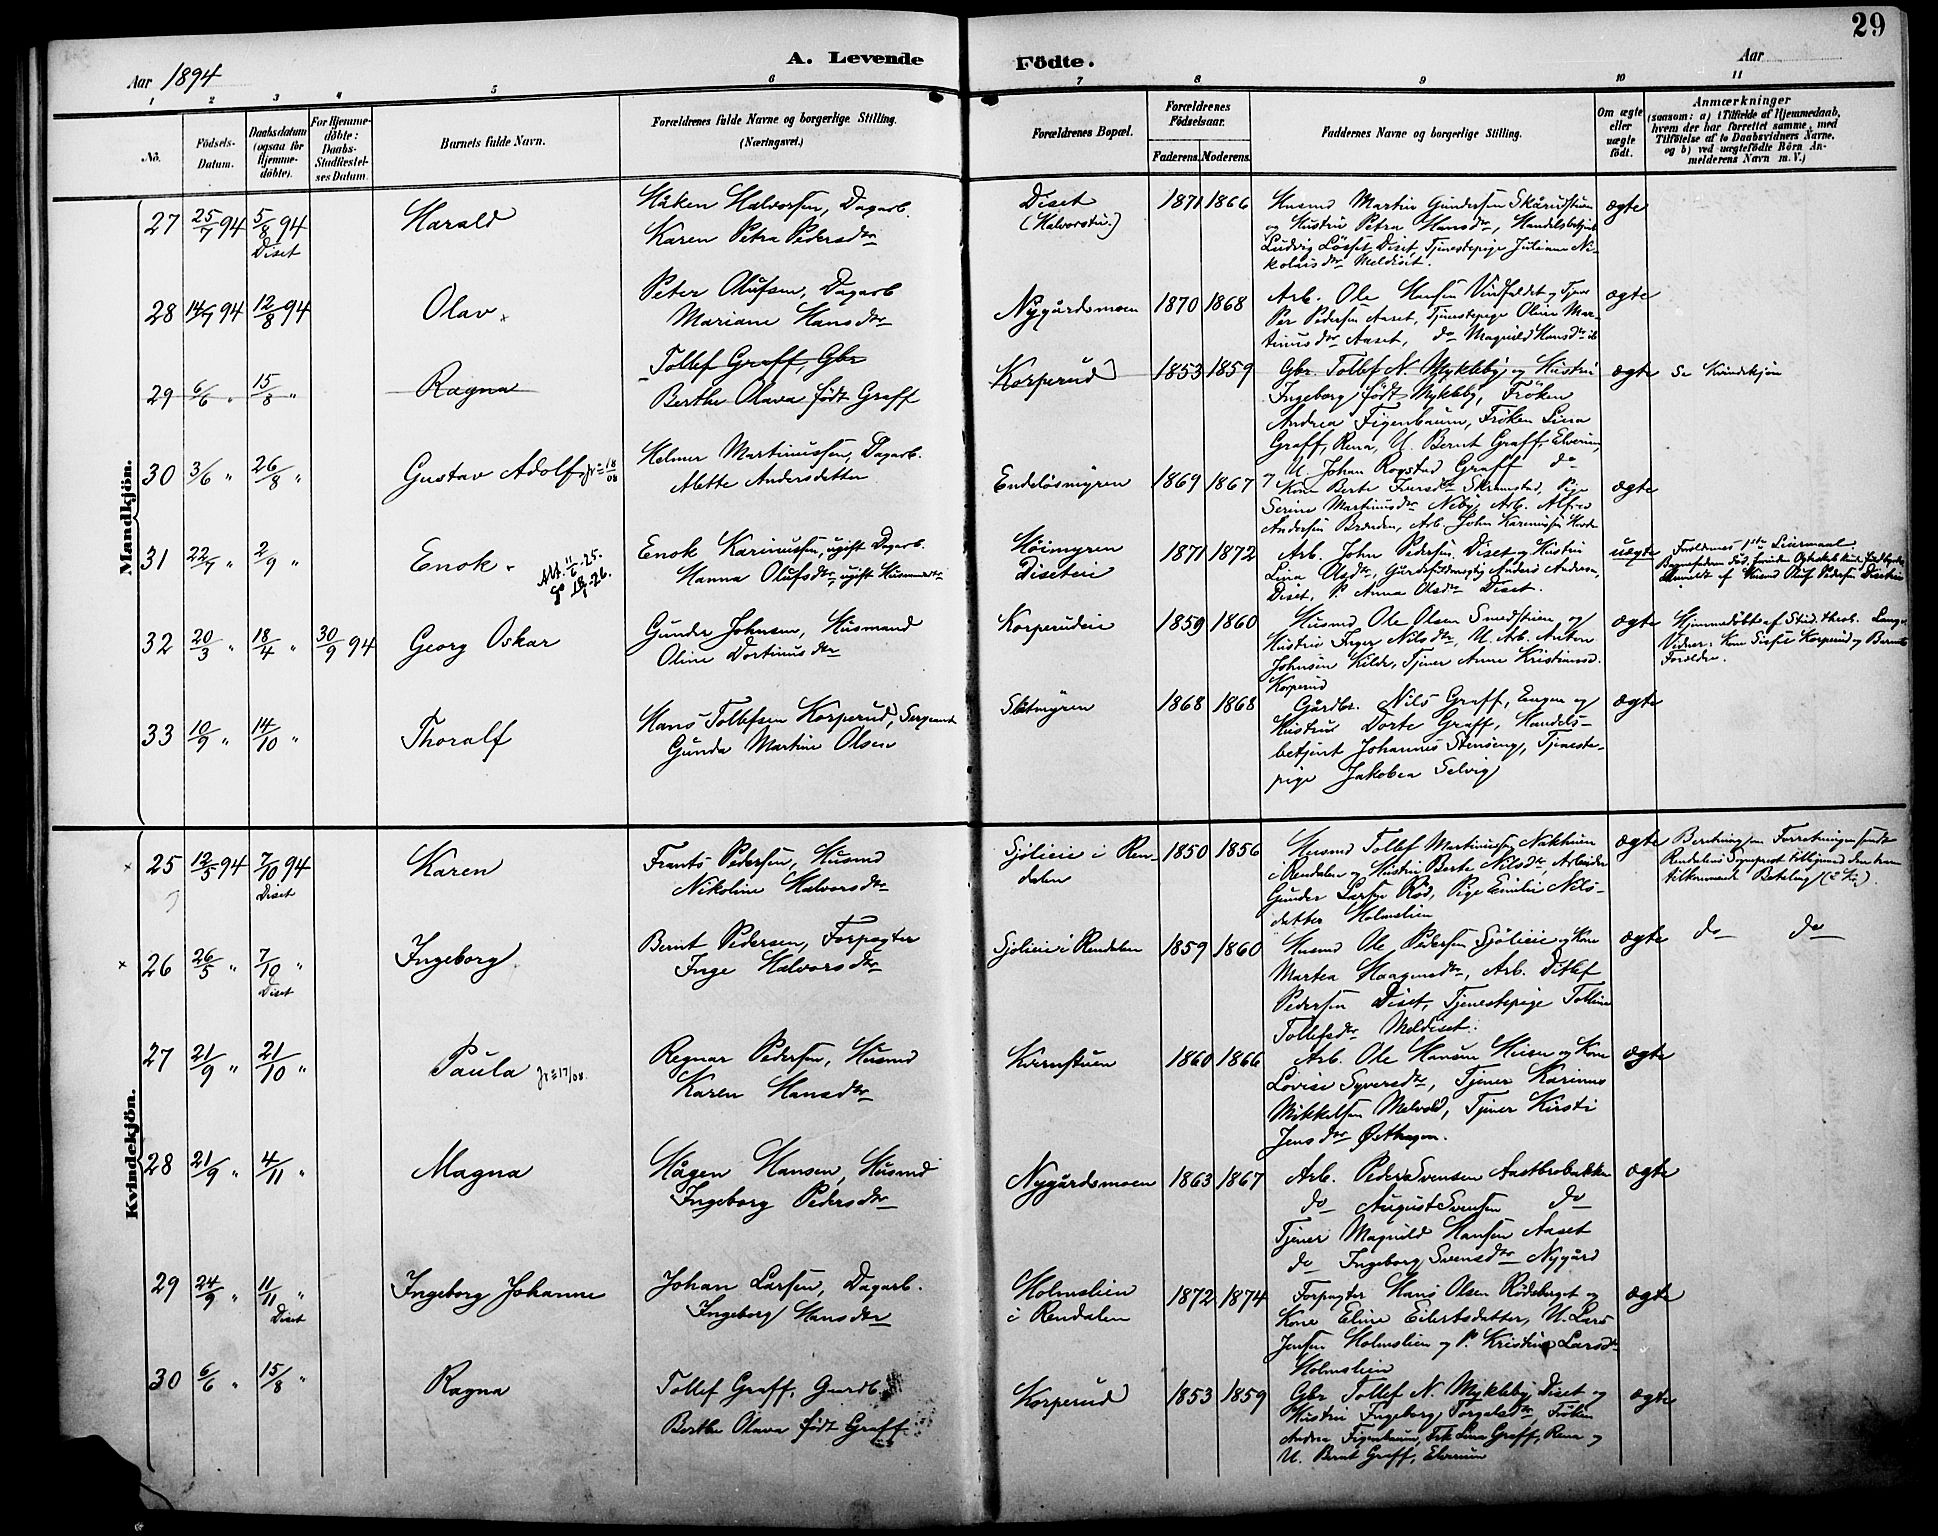 29
A. Levende Födte.
Aar 1894
Aar
1 2 3 4 5 6 7 8 9 10 11
No.
Födsels-Datum.
Daabsdatum (ogsaa for Hjemme-döbte).
For Hjemme-döbte: Daabs-Stadfæstel-ses Datum.
Barnets fulde Navn.
Forældrenes fulde Navne og borgerlige Stilling. (Næringsvei.)
Forældrenes Bopæl.
Forældrenes Födselsaar.
Faderens. Moderens.
Faddernes Navne og borgerlige Stilling.
Om ægte eller uægte födt.
Anmærkninger
(saasom: a) i Tilfælde af Hjemmedaab, hvem der har forrettet samme, med Tilföielse af to Daabsvidners Navne, og b) ved uægtefödte Börn An-melderens Navn m. V.)
Mandkjön.
27 25/7 94 5/8 94 Diset
Harald
Håken Halvorsen, Dagarb.
Karen Petra Pedersdtr
Diset (Halvorstu.)
1871 1866
Husmd Martin Gundersen
og Hustru Petra Hansdtr, Handelsbetjent
Ludvig Lösset, Diset, Tjenestepige Juliane Ni-
kolaisdtr Meldiset.
ægte
28 14/7 94 12/8 94
Olav
Peter Olufsen, Dagarb
Mariane Hansdtr
Nygårdsmoen
1870 1868
Arb. Ole Hansen Vindfaldet og Tjener
Per Pedersen Aaset, Tjenestepige Oline Mar-
tinusdtr Aaset, do Magnild Hansdtr ib
ægte
29 6/6 " 15/8 "
Ragna
Tollef Graff, Gbr
Berthe Olava født Graff
Korperud
1853 1859
Gbr. Tollef N. Mykleby og Hustru
Ingeborg født Mykleby, Fröken
Andrea Figenbaum, Fröken Lina
Graff, Rena, U. Bernt Graff, Elverum,
og U. Johan Rogstad Graff do
ægte
Se Kvindekjön
30 3/6 " 26/8 "
Gustav Adolf 18/08
Helmer Martinussen, Dagarb.
Mette Andersdatter
Endelösmyren
1869 1867
Kone Berte Iversdtr Skramstad, Pige
Serine Martinusdtr Neby, Arb. Alfred
Andersen Brænden, Arb. John Karinusen
ægte
31 22/7 " 2/9 "
Enok
Att. 11/6.25.
Enok Karinussen, ugift Dagarb.
Hanna Olufsdtr, ugift Husmandsdtr
Höimyren
Diseteie
1871 1872
Arb. John Pedersen Diset og Hustru
Lina Olsdtr, Gårdsfuldmægtig Anders Andersen,
Diset, P. Anna Olsdtr Diset.
uægte
Forældrenes 1ste Leiermaal.
Anmeldt af Husmd Oluf Pedersen Diseteie
32 20/3 " 18/4 " 30/9 94
Georg Oskar
Gunder Johnsen, Husmand
Oline Dortinusdtr
Korperudeie
1859 1860
Husmd Ole Olsen Smedstuen og
Hustru Inger Nilsdtr, U. Arb. Anton
Johnsen Kilde, Tjener Anne Kristiansd.
Korperud
ægte
Hjemmedöbt af Stud. theol. Lange.
Vidner: Kone Sofie Korperud og Barnets
Forældre.
33 10/9 " 14/10 "
Thoralf
Hans Tollefsen Korperud, Sergeant
Gunda Martine Olsen
Slåtmyren
1868 1868
Gårdbr. Nils Graff, Engen og
Hustru Dorte Graff, Handels-
betjent Johannes Stenseng, Tjeneste-
pige Jakobea Selvig
ægte
Kvindekjön.
25 12/5 94 7/10 94 Diset
Karen
Frants Pedersen, Husmd
Nikoline Halvorsdtr
Sjölieie i Ren-
dalen
1850 1856
Husmd Tollef Martinussen
i Rendalen og Hustru Berte Nilsdtr, Arbeider
Gunder Larsen Rød, Pige Emilie Nils-
datter Holmslien
ægte
Beretning om Forretningen sendt
Rendalens Sogneprest tilligemed den ham
tilkommende Betaling (2 Kr.).
26 26/5 " 7/10 " Diset
Ingeborg
Bernt Pedersen, Forpagter
Inge Halvorsdtr
Sjölieie i Rendalen
1859 1860
Husmd Ole Pedersen Sjölieie og Kone
Martea Haagensdtr, Arb. Ditlef
Pedersen Diset, Tjenestepige Tolline
Tollefsdtr Meldiset.
ægte
do do
27 21/9 " 21/10 "
Paula 17/08.
Regnar Pedersen, Husmd
Karen Hansdtr
Kvernstuen
1860 1866
Arb. Ole Hansen Moen og Kone
Lovise Syversdtr, Tjener Karinus
Mikkelsen Melvold, Tjener Kirsti
Jensdtr Østhagen.
ægte
28 21/9 " 4/11 "
Magna
Hågen Hansen, Husmd
Ingeborg Pedersdtr
Nygårdsmoen
1863 1867
Arb. Peder Svensen Aastbrobakken
do August Svensen do
Tjener Magnild Hansen Aaset
do Ingeborg Svensdtr Nygård
ægte
29 24/9 " 11/11 " Diset
Ingeborg Johanne
Johan Larsen, Dagarb.
Ingeborg Hansdtr
Holmslien
i Rendalen
1872 1874
Forpagter Hans Olsen Rödsberget og
Kone Eline Eilertsdatter, U. Lars
Jensen Holmslien og P. Kristine Larsdtr
Holmslien
ægte
30 6/6 " 15/8 "
Ragna
Tollef Graff, Gårdb.
Berthe Olava født Graff
Korperud
1853 1859
Gbr Tollef N. Mykleby, Diset og
Hustru Ingeborg Torgalsdtr, Fröken
Andrea Figenbaum, Frk Lina Graff, Rena og
U. Bernt Graff, Elverum
ægte